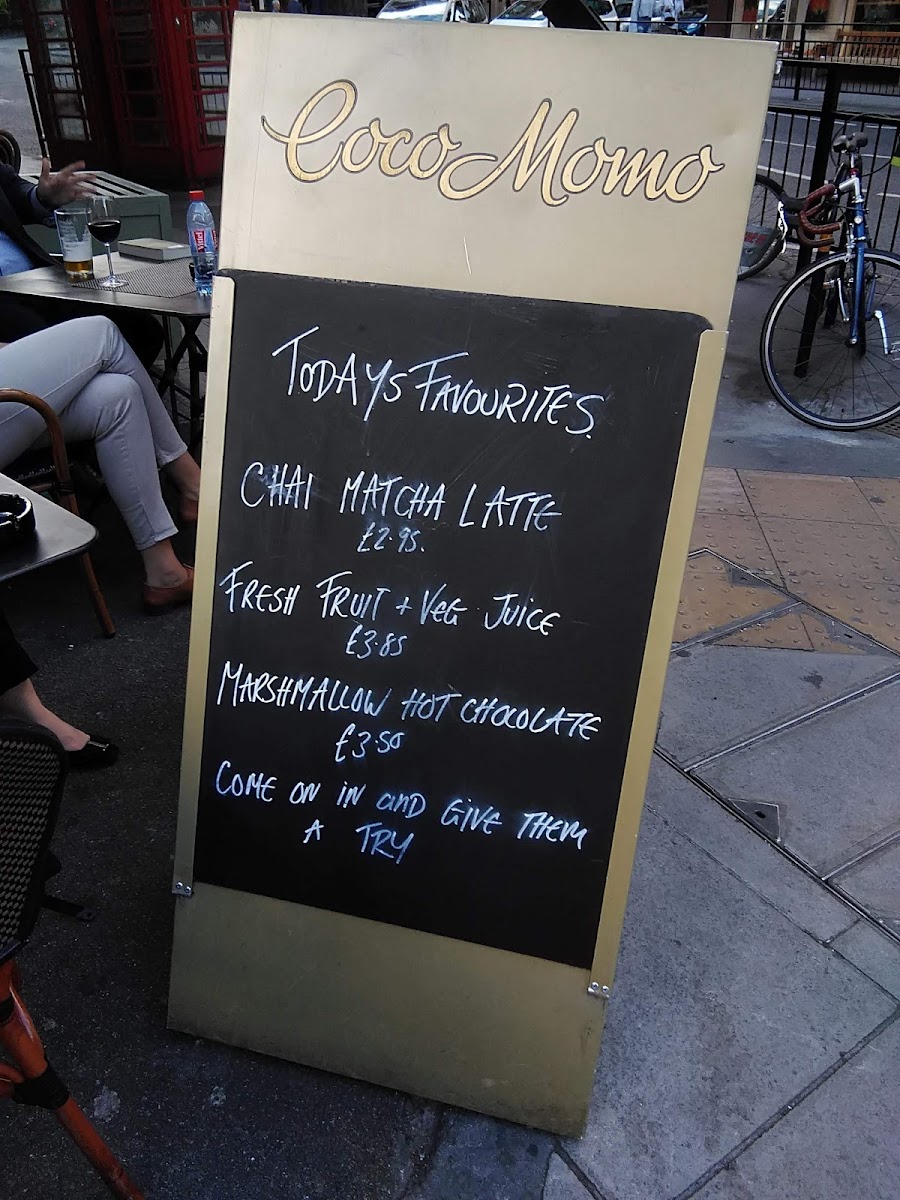 Coco Momo
TODAYS FAVOURITES.
CHAI MATCHA LATTE
£2.95.
FRESH FRUIT + VEG JUICE
£3.85
MARSHMALLOW HOT CHOCOLATE
£3.50
COME ON IN and GIVE THEM
A TRY
Vittel